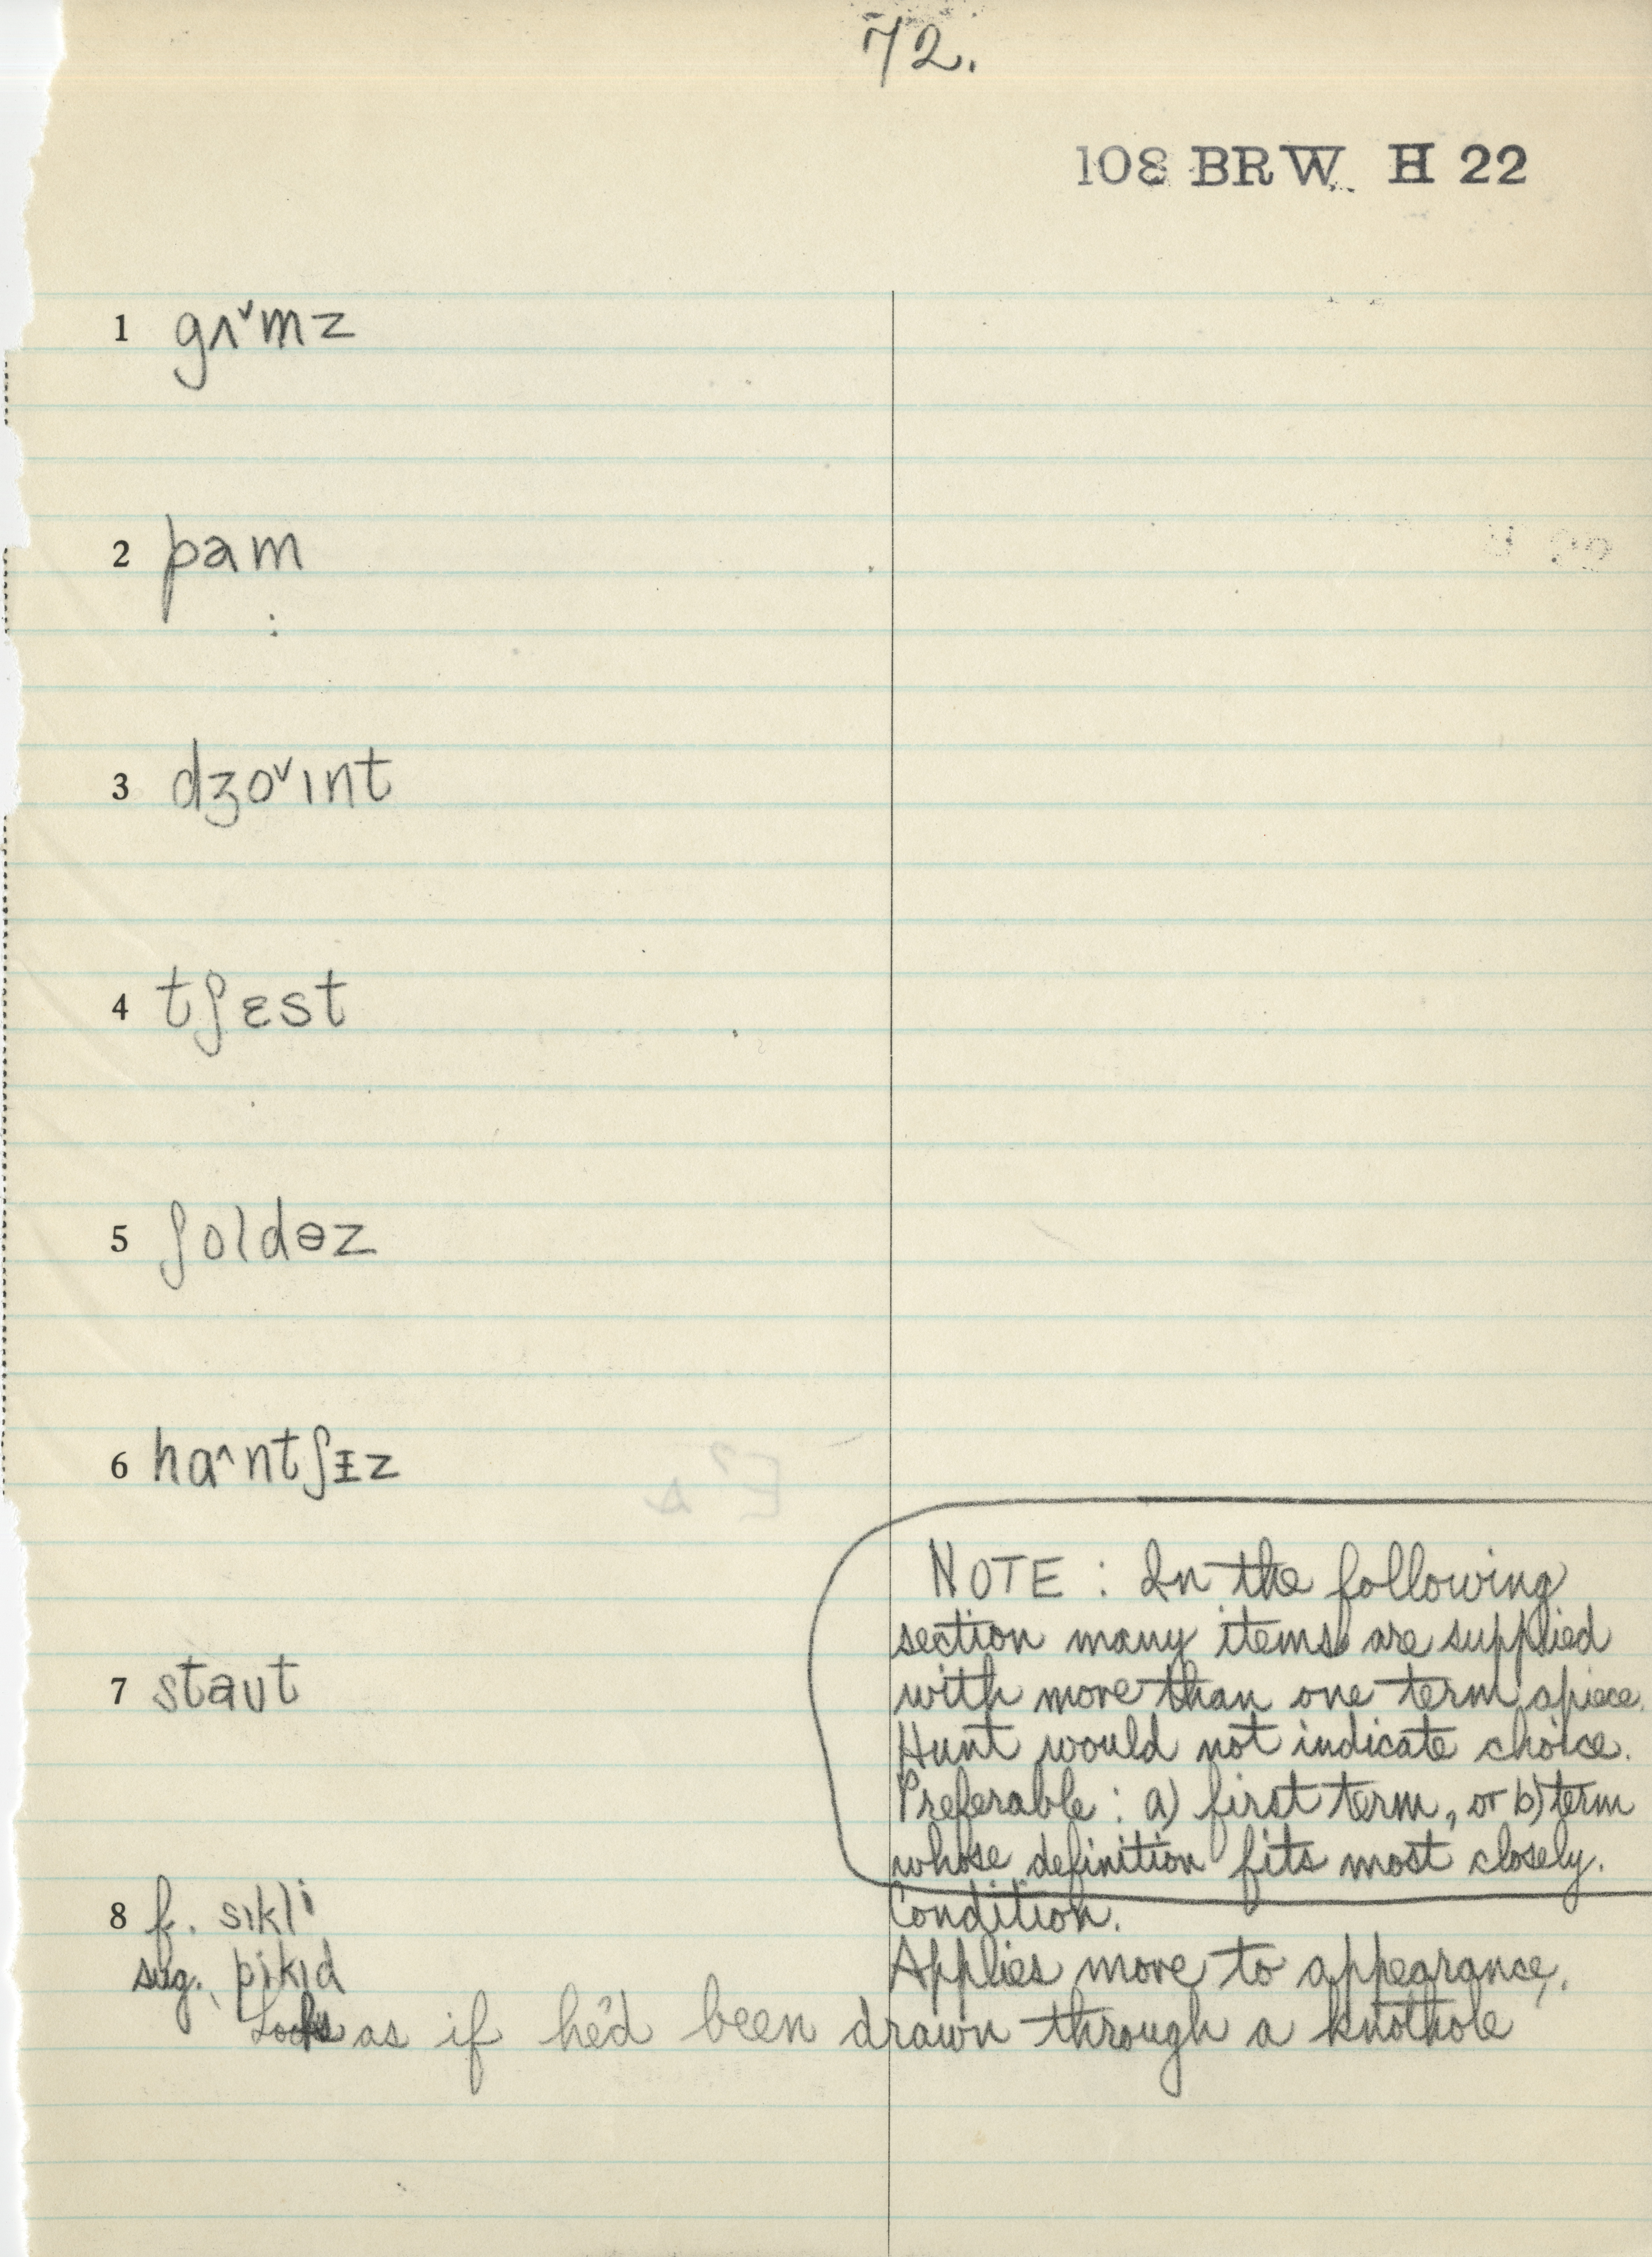 72.
108 BRW H 22
1 gʌ˅mz
2 pam
3 dʒo˅ɪnt
4 tʃɛst
5 ʃoldəz
6 ha^ntʃɪz
NOTE : In the following
section many items are supplied
7 staʊt with more than one term apiece.
Hunt would not indicate choice.
Preferable : a) first term, or b) term
whose definition fits most closely.
8 f. sɪkli Condition.
sug. pikɪd Applies more to appearance.
Looks as if he'd been drawn through a knothole